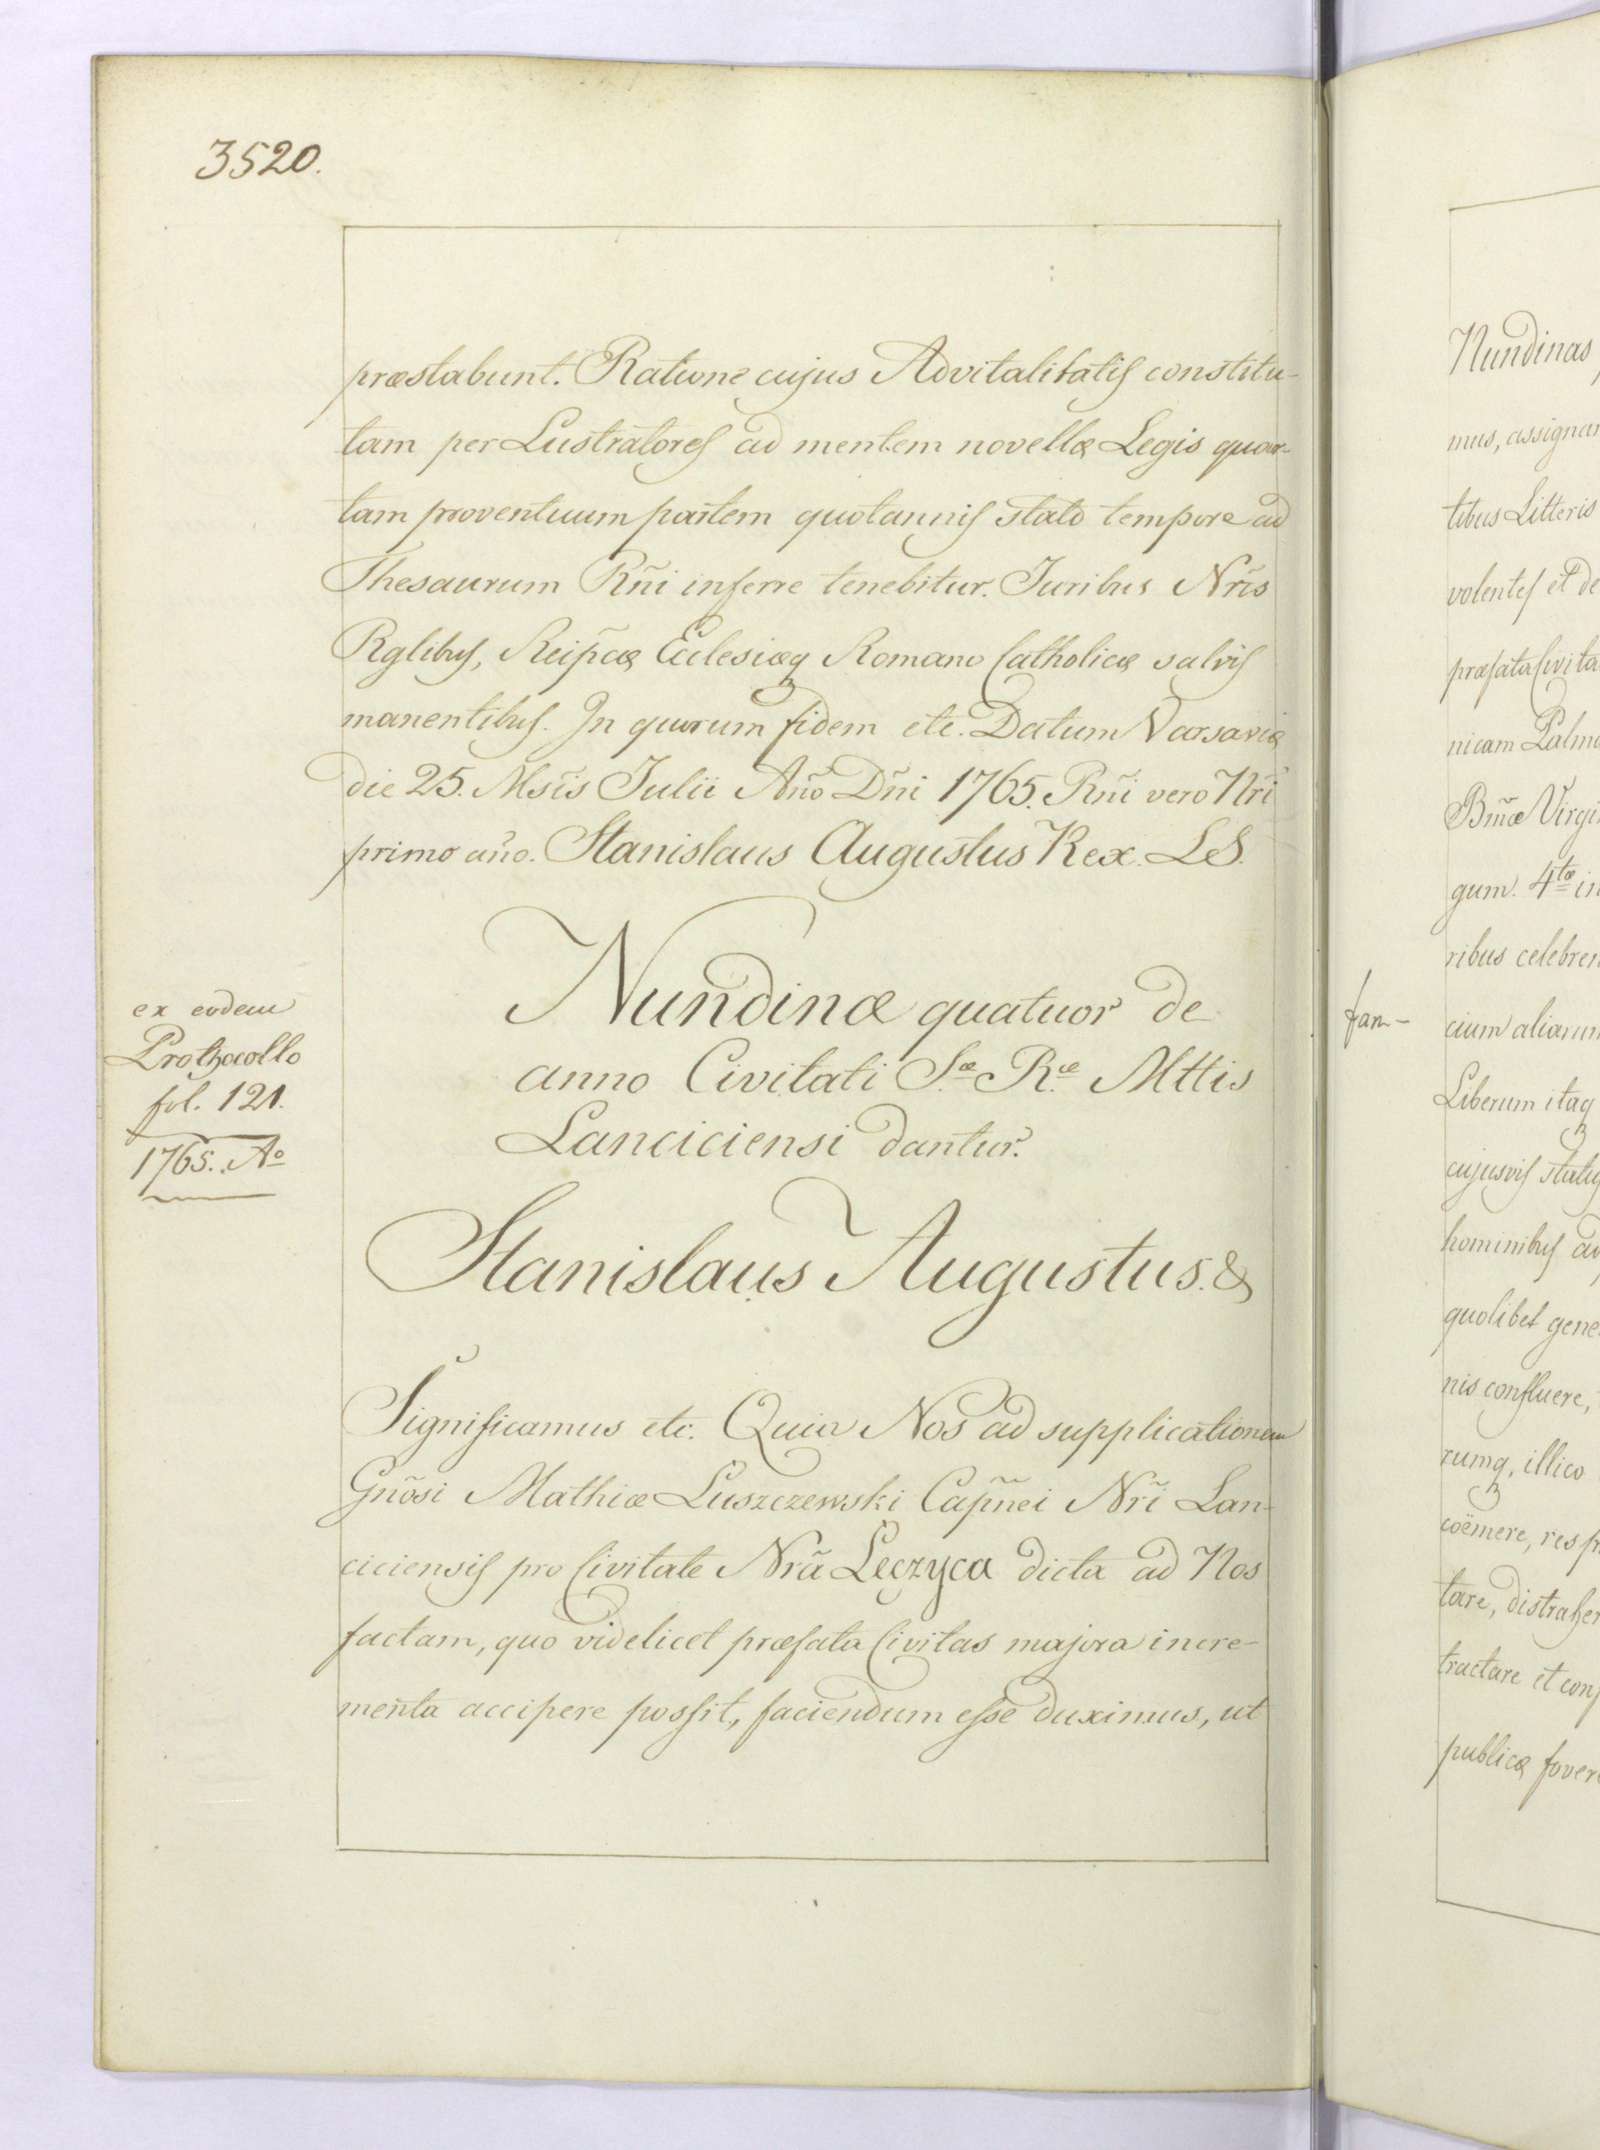 3520.
præstabunt. Ratione cujus Advitalitatis constitu-
tam per Lustratores ad mentem novellæ Legis quar-
tam proventuum partem quotannis stato tempore ad
Thesaurum Rñi inferre tenebitur. Juribus Nr̃is
Rglibus, Reipc̃æ Ecclesiæq Romano Catholicæ salvis
manentibus. In quorum fidem etc. Datum Varsaviæ
die 25. Msĩs Julii Año Dñi 1765. Rñi vero Nr̃i
primo año. Stanislaus Augustus Rex. LS.
ex eodem
Prothocollo
fol. 121.
1765. Aº
Nundinæ quatuor de
anno Civitati Sæ Ræ Mttis
Lanciciensi dantur.
Stanislaus Augustus. &
Significamus etc. Quia Nos ad supplicationem
Gñosi Mathiæ Luszczewski Capñei Nr̃i Lan-
ciciensis pro Civitate Nrã Lęczyca dicta ad Nos
factam, quo videlicet præfata Civitas majora incre-
menta accipere possit, faciendum esse duximus, ut
Nundinas
mus, assignan
tibus Litteris
volentes et de
præfata Civita
nicam Palma
Bm̃æ Virgi
gum. 4tæ in
ribus celebren
fan-
cium aliarum
Liberum itaq
cujusvis statu
hominibus ad
quolibet gene
nis confluere,
rumq, illico
coëmere, res p
tare, distraher
tractare et con
publicæ fovere